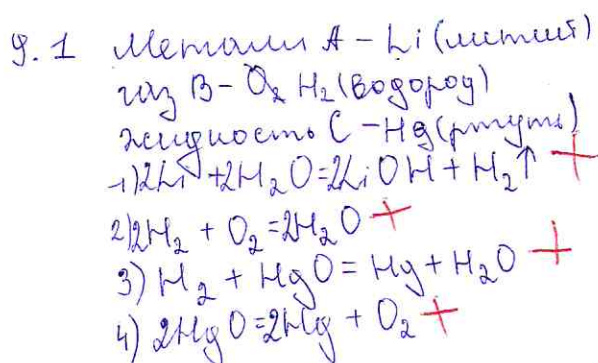 9.1 Металл A - Li (литий)
газ B - O₂ H₂ (водород)
жидкость C - Hg (ртуть)
1) 2Li + 2H₂O = 2LiOH + H₂↑ +
2) 2H₂ + O₂ = 2H₂O +
3) H₂ + HgO = Hg + H₂O +
4) 2HgO = 2Hg + O₂ +